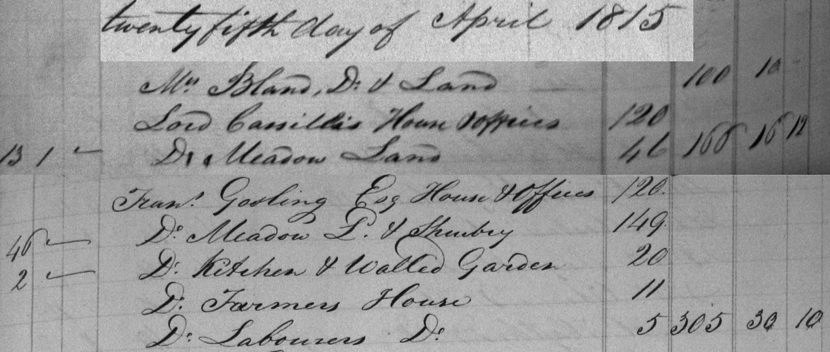 twenty fifth day of April 1815
Mrs Bland, Do & Land 100 10
Lord Cassillis House & offices 120
13 1 Do Meadow Land 46 166 16 12
Frans. Gosling Esq House & Offices 120
46 Do Meadow L. & Shruby 149
2 Do Kitchen & Walled Garden 20
Do Farmers House 11
Do Labourers Do 5 305 30 10